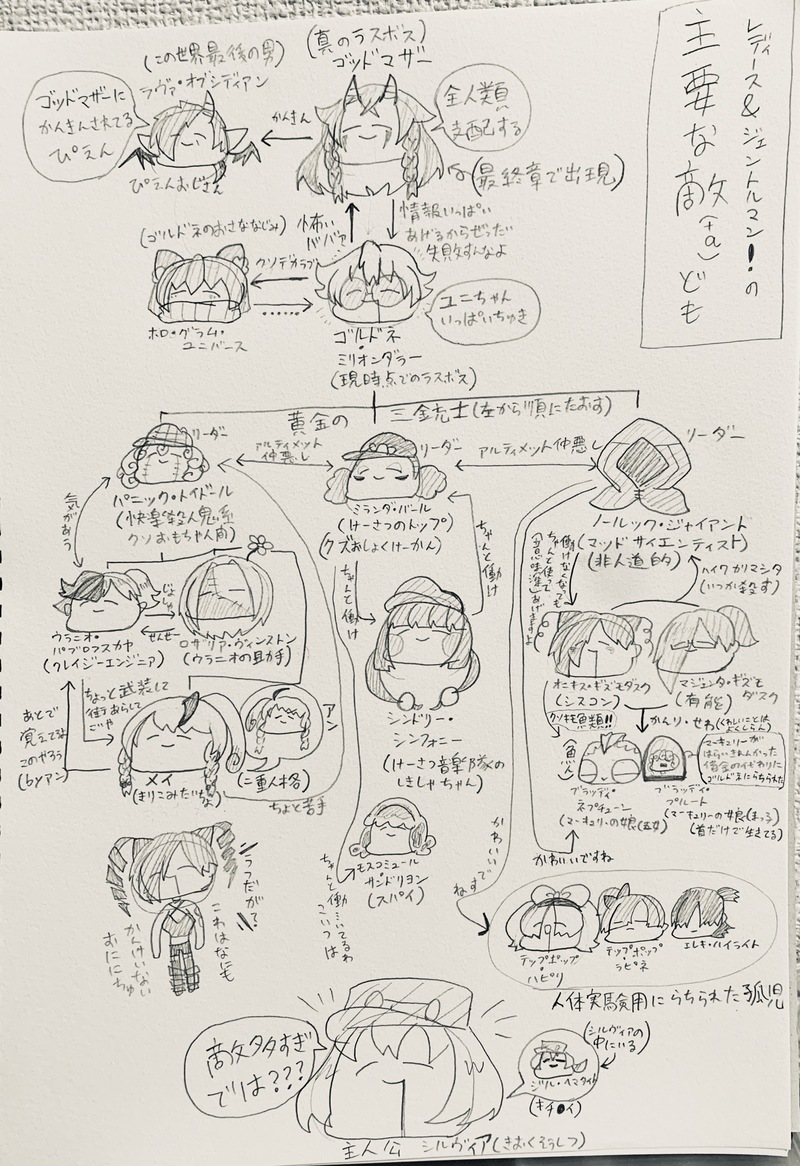 レディース&ジェントルマン!の
主要な敵(+α)ども
(真のラスボス)
ゴッドマザー
(この世界最後の男)
ラヴァ・オブシディアン
ゴッドマザーに
かんきんされてる
ぴえん
かんきん
全人類
支配する
ぴえんおじさん
(最終章で出現)
情報いっぱい
あげるからぜったい
失敗すんなよ
怖い
ババァ
(ゴルドネのおさななじみ)
クソデカラブ
ホロ・グラム・
ユニバース
ユニちゃん
いっぱいちゅき
ゴルドネ
・
ミリオンダラー
(現時点でのラスボス)
黄金の
三銃士(左から順にたおす)
リーダー
アルティメット
仲悪し
リーダー
アルティメット仲悪し
リーダー
パニック・トイドール
(快楽殺人鬼系
クソおもちゃ人間)
ミランダ・パール
(けーさつのトップ)
クズおしょくけーかん
ノールック・ジャイアント
(マッドサイエンティスト)
(非人道的)
気があう
ちゃんと働け
ちゃんと働け
働けなくなっても
ちゃんと使って
あげますよ
(意味深)
ハイワカリマシタ
(いつか殺す)
じょしゅ
せんせー
ウラニオ・
パブロフスカヤ
(クレイジーエンジニア)
ロザリア・ヴィンストン
(ウラニオの助手)
シンドリー・
シンフォニー
(けーさつ音楽隊の
しきしゃちゃん)
オニキス・ギズモダスク
(シスコン)
マジェンタ・ギズモ
ダスク
(有能)
クソキモ魚類!!
かんり・せわ
ちょっと武装して
街あらして
こいや
あとで
覚えてろよ
このやろう
(byアン)
アン
メイ
(きりこみたいちょ)
(二重人格)
ちょと苦手
魚人
ブラッディ・
ネプチューン
(マーキュリーの娘(五女)
ブラッディ・
プルート
(マーキュリーの娘(まっ子)
(首だけで生きてる)
マーキュリーが
はらいきれんかった
借金のイがわりに
ゴルドネにうられた
モスコミュール・
サンドリヨン
(スパイ)
ちゃんと働…いてるわ
こいつは
かわいい
ですね
かわいいですね
うつだが?
これはなにも
かんけいない
むににちゅ
テップポップ
・
ハピリ
テップポップ
・
ラピネ
エレキ・ハイライト
人体実験用にうられた孤児
敵多すぎ
では???
(シルヴィアの
中にいる)
ジル・ヘマタイト
(キチ●イ)
主人公 シルヴィア(きおくそうしつ)